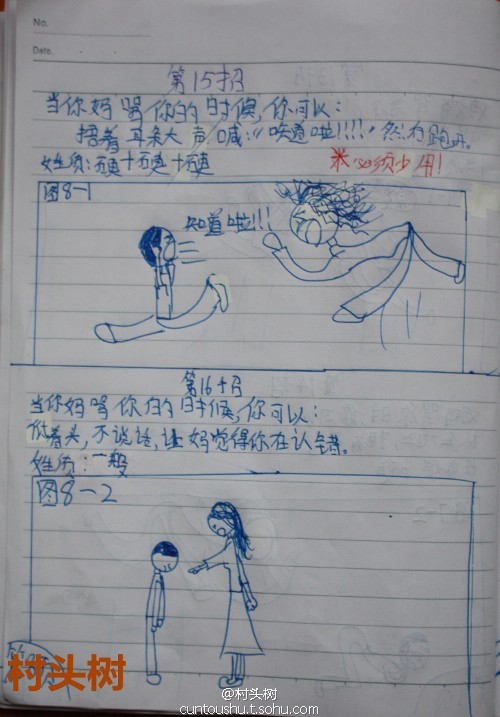 No.
Date.
第15招
当你妈骂你的的时候,你可以:
捂着耳朵大声喊:“知道啦!!!!”然后跑开。
姓质: ※必须少用!
图8-1
知道啦!!!
第16招
当你妈骂你的时候,你可以:
低着头,不说话,让妈觉得你在认错。
姓质:一般
图8-2
村头树
@村头树
cuntoushu.t.sohu.com